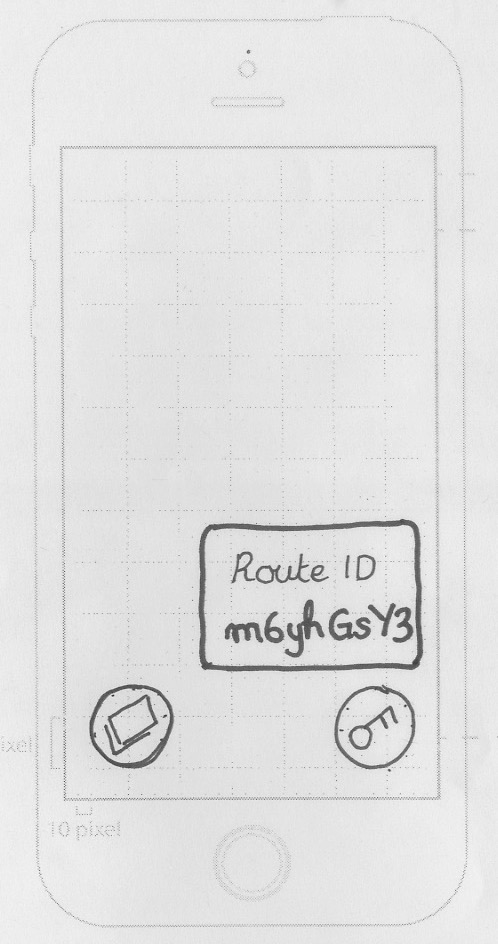 Route ID
m6yhGsY3
ixel
10 pixel